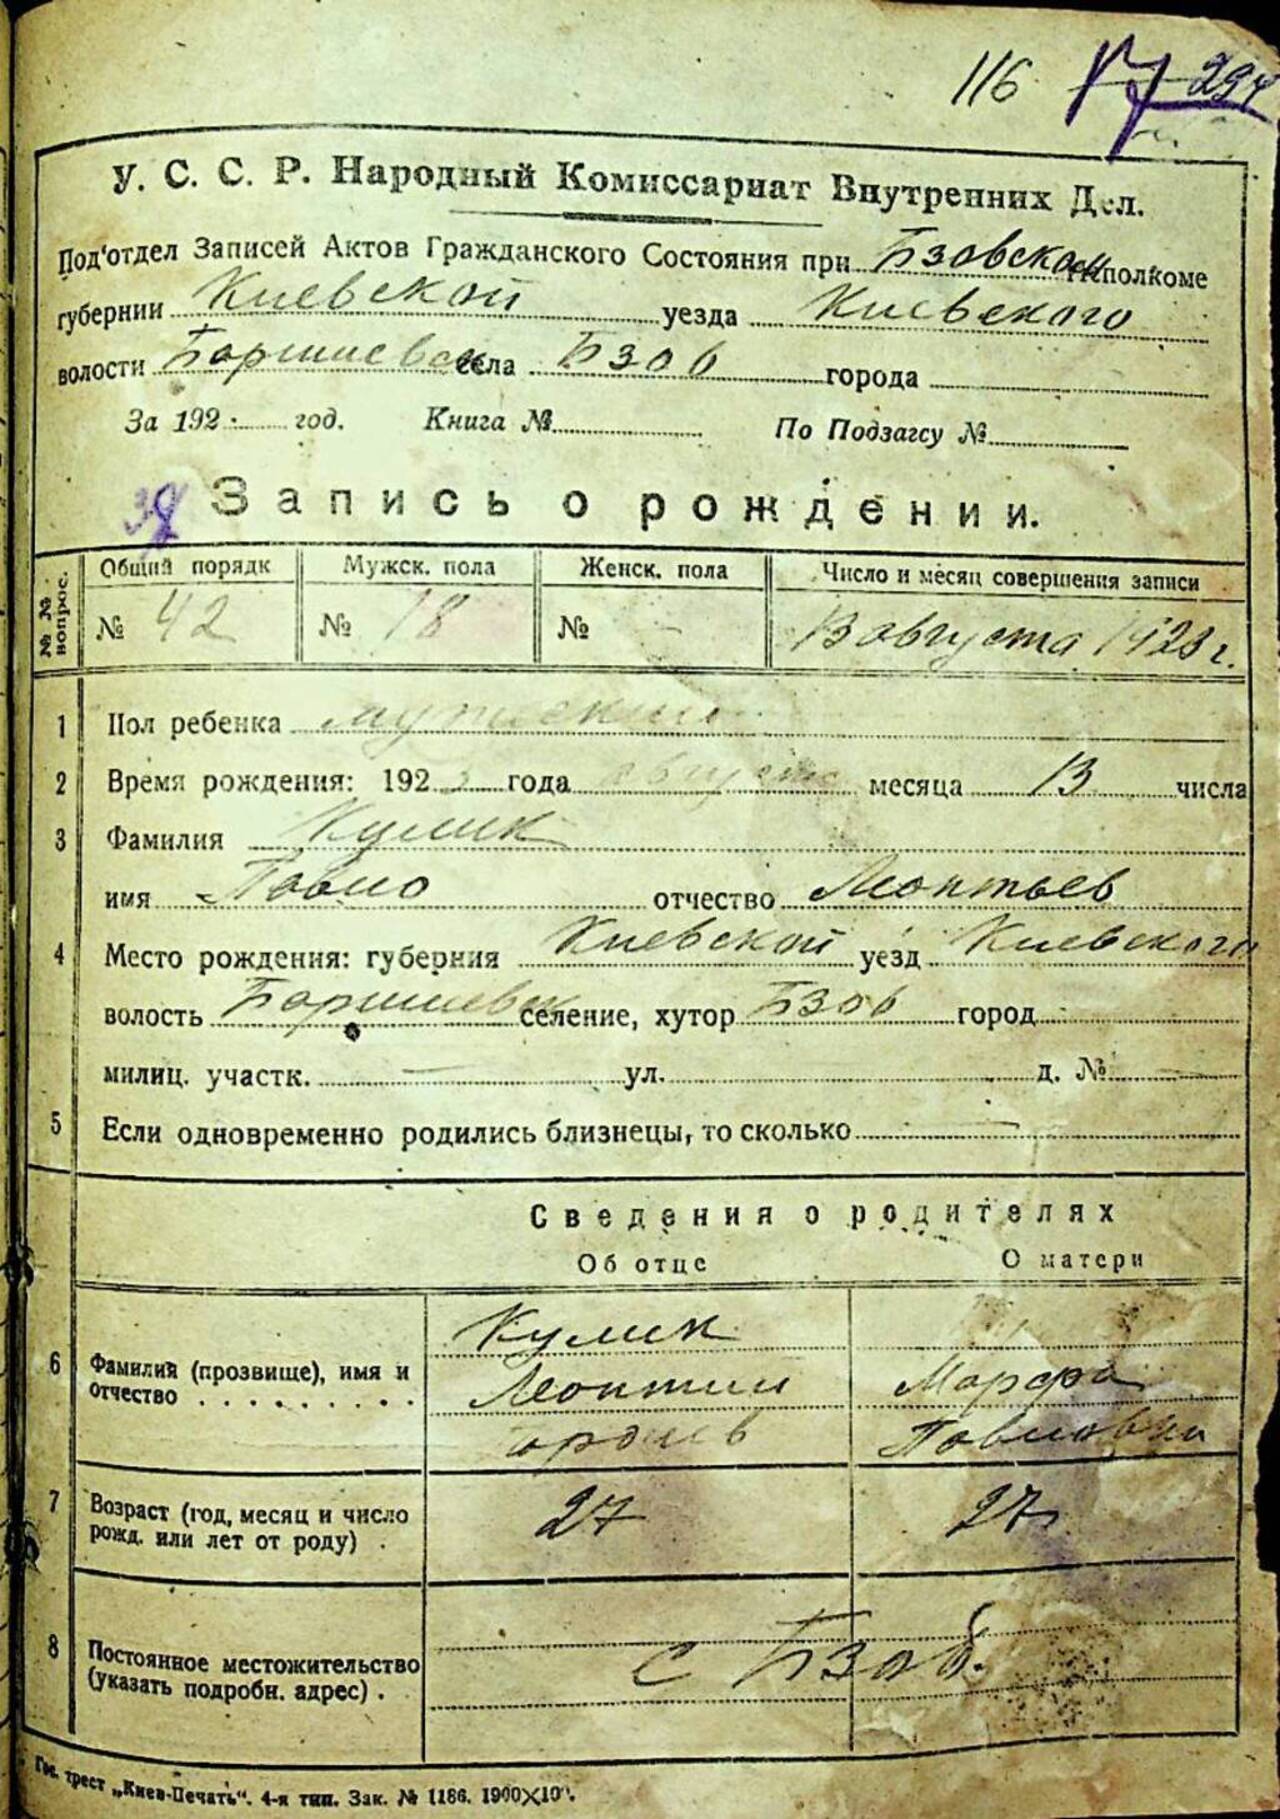 116 294
У. С. С. Р. Народный Комиссариат Внутренних Дел.
Под'отдел Записей Актов Гражданского Состояния при Бзовском исполкоме
губернии Киевской уезда Киевского
волости Баришевск села Бзов города
За 192 год. Книга № По Подзагсу №
Запись о рождении.
№ № вопрос. Общий порядк Мужск. пола Женск. пола Число и месяц совершения записи
№ 42 № 18 № - 13 августа 1923 г.
1 Пол ребенка мужский
2 Время рождения: 1923 года августа месяца 13 числа
3 Фамилия Кулик
имя Павло отчество Леонтьев
4 Место рождения: губерния Киевской уезд Киевского
волость Баришевск селение, хутор Бзов город
милиц. участк. — ул. д. № —
5 Если одновременно родились близнецы, то сколько —
Сведения о родителях
Об отце О матери
Кулик
6 Фамилия (прозвище), имя и Леонтий Марфа
отчество . . . . . . . . . . Павловна
7 Возраст (год, месяц и число 27 27
рожд. или лет от роду) .
8 Постоянное местожительство с Бзов.
(указать подробн. адрес) .
Гос. трест „Киев-Печать“. 4-я тип. Зак. № 1186. 1900×10".